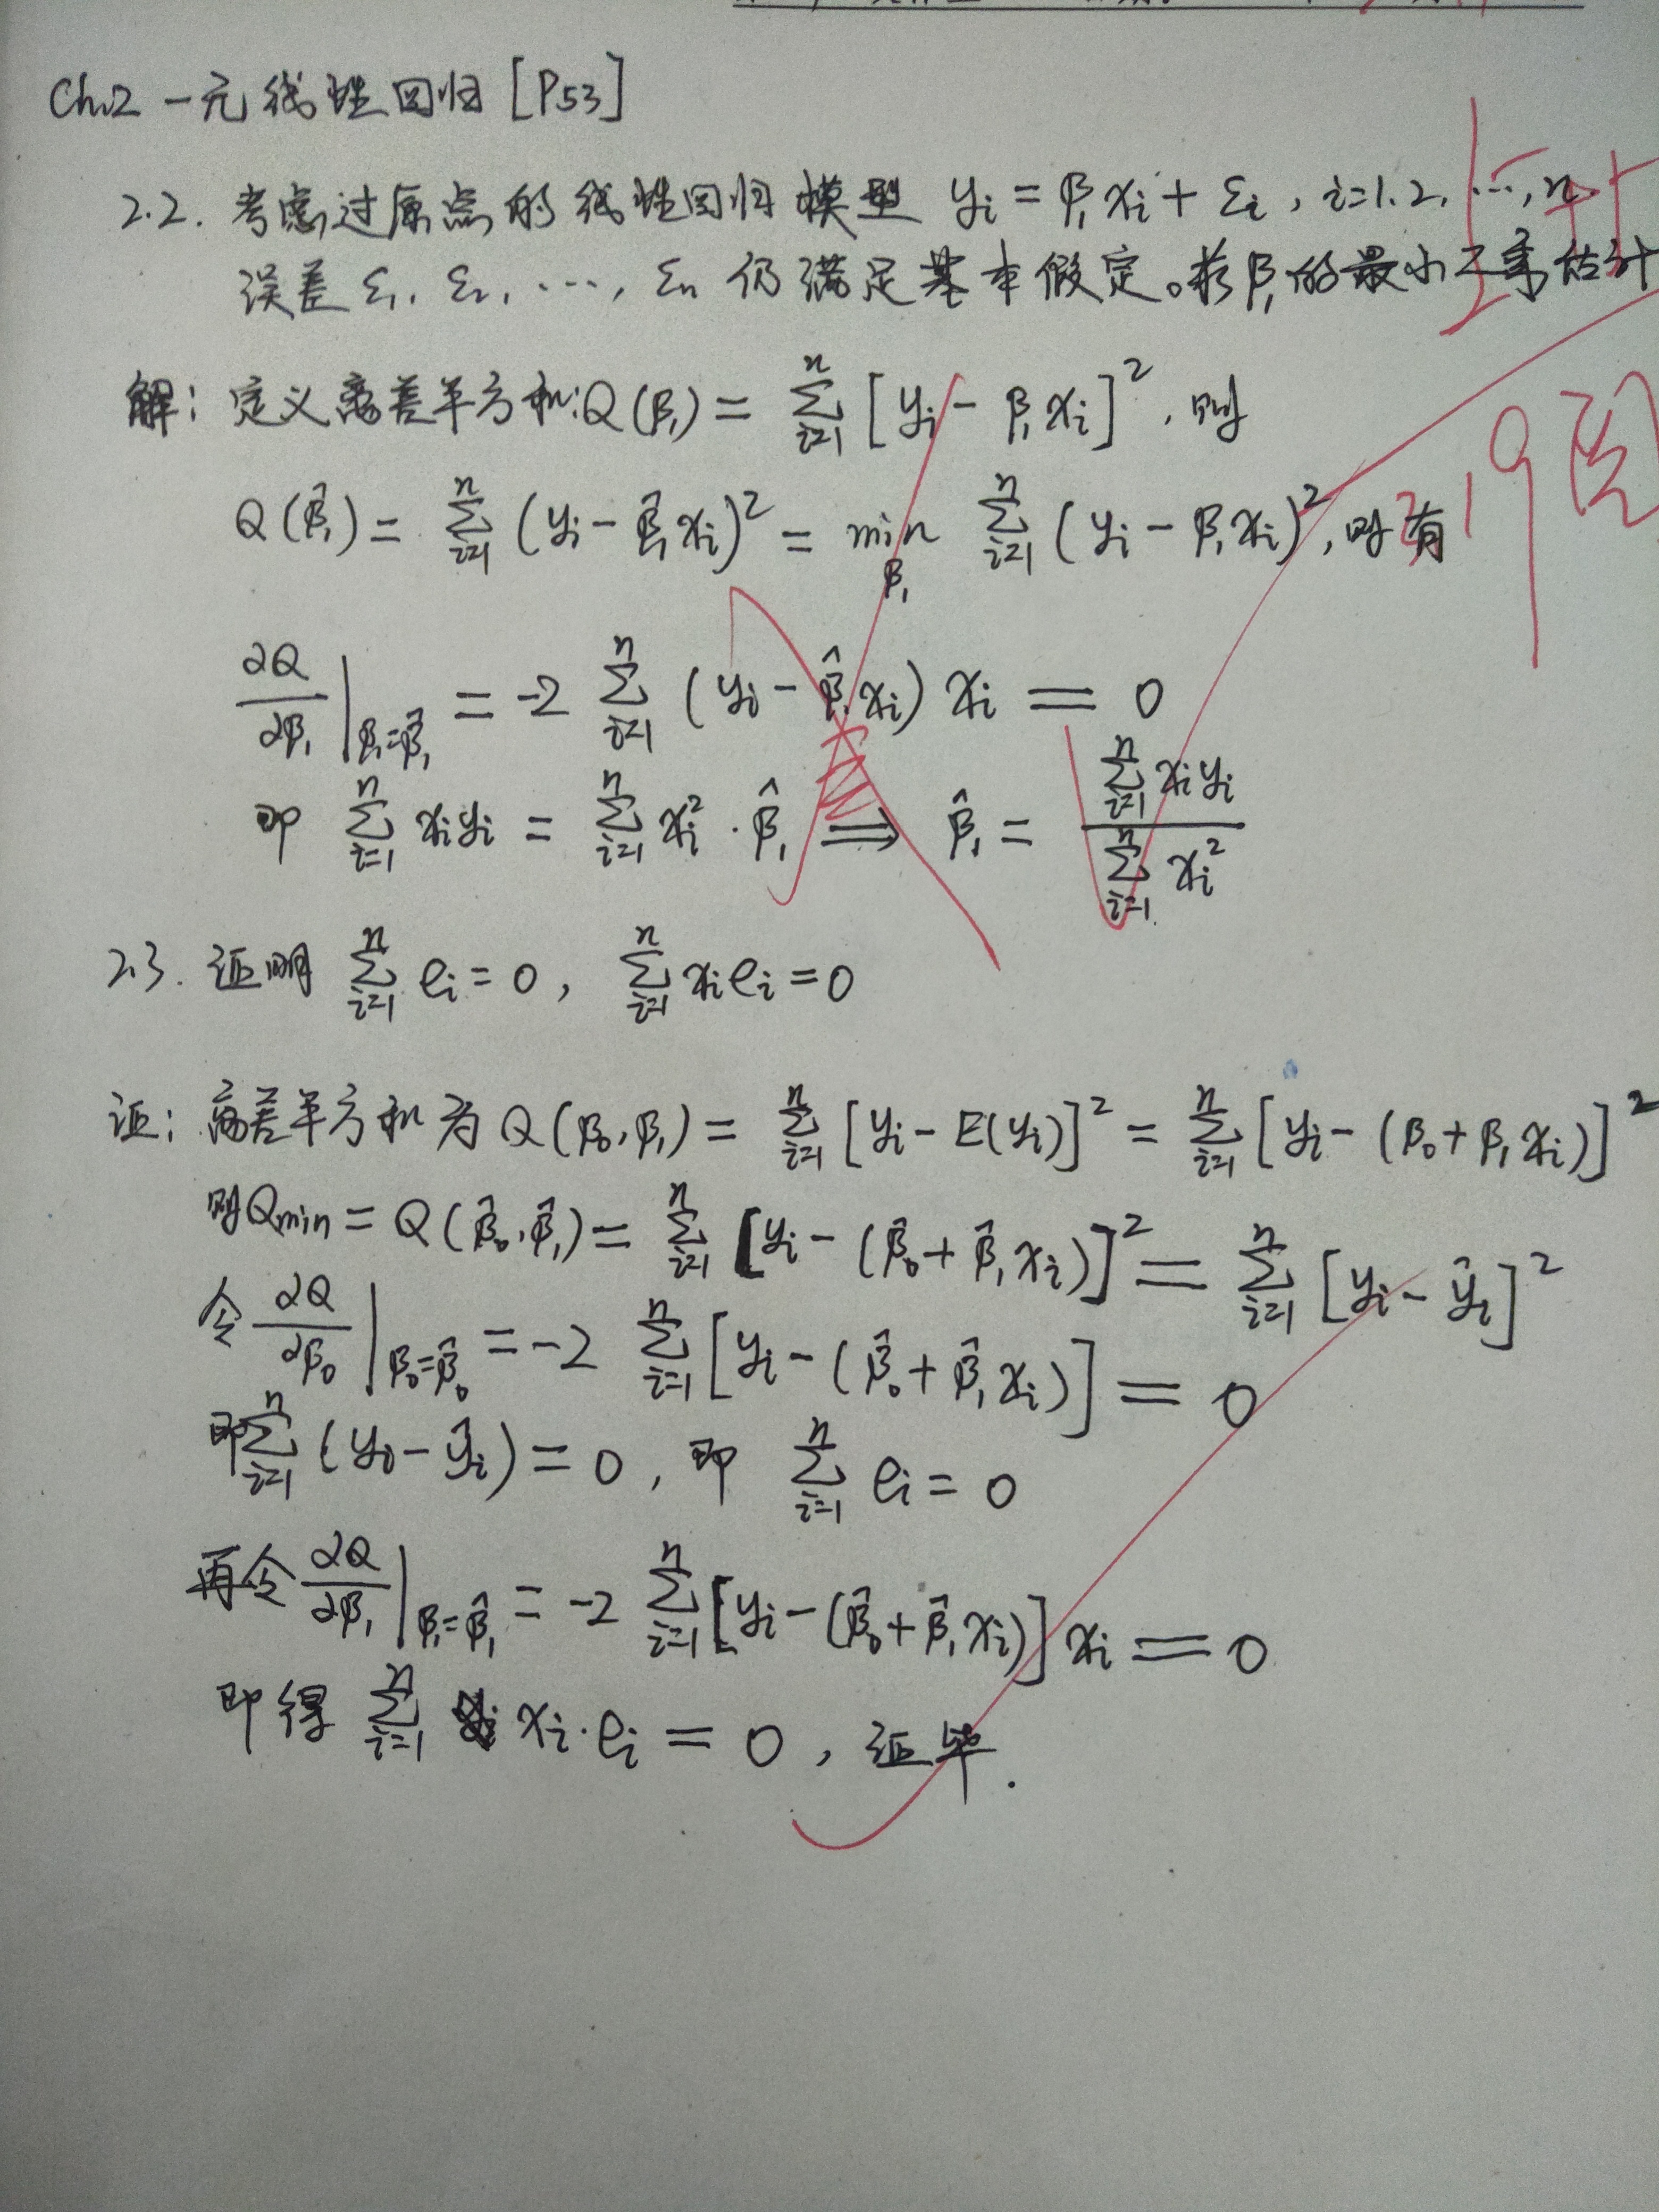 Ch.2 一元线性回归 [P53]
2.2. 考虑过原点的线性回归模型 yᵢ = β₁xᵢ + εᵢ, i=1.2. …, n
误差 ε₁. ε₂. …, εₙ 仍满足基本假定。求β₁的最小二乘估计
解: 定义离差平方和: Q(β₁) = ∑ⁿᵢ₌₁ [yᵢ - β₁xᵢ]², 则
Q(β̂₁) = ∑ⁿᵢ₌₁ (yᵢ - β̂₁xᵢ)² = min_β₁ ∑ⁿᵢ₌₁ (yᵢ - β₁xᵢ)², 则有
∂Q/∂β₁ |β₁=β̂₁ = -2 ∑ⁿᵢ₌₁ (yᵢ - β̂₁xᵢ) xᵢ = 0
即 ∑ⁿᵢ₌₁ xᵢyᵢ = ∑ⁿᵢ₌₁ xᵢ² · β̂₁ ⟹ β̂₁ = ∑ⁿᵢ₌₁ xᵢyᵢ / ∑ⁿᵢ₌₁ xᵢ²
2.3. 证明 ∑ⁿᵢ₌₁ eᵢ = 0, ∑ⁿᵢ₌₁ xᵢeᵢ = 0
证: 离差平方和为 Q(β₀, β₁) = ∑ⁿᵢ₌₁ [yᵢ - E(yᵢ)]² = ∑ⁿᵢ₌₁ [yᵢ - (β₀ + β₁xᵢ)]²
则Qmin = Q(β̂₀, β̂₁) = ∑ⁿᵢ₌₁ [yᵢ - (β̂₀ + β̂₁xᵢ)]² = ∑ⁿᵢ₌₁ [yᵢ - ŷᵢ]²
令 ∂Q/∂β₀ |β₀=β̂₀ = -2 ∑ⁿᵢ₌₁ [yᵢ - (β̂₀ + β̂₁xᵢ)] = 0
即∑ⁿᵢ₌₁ (yᵢ - ŷᵢ) = 0, 即 ∑ⁿᵢ₌₁ eᵢ = 0
再令 ∂Q/∂β₁ |β₁=β̂₁ = -2 ∑ⁿᵢ₌₁ [yᵢ - (β̂₀ + β̂₁xᵢ)] xᵢ = 0
即得 ∑ⁿᵢ₌₁ xᵢ · eᵢ = 0, 证毕.